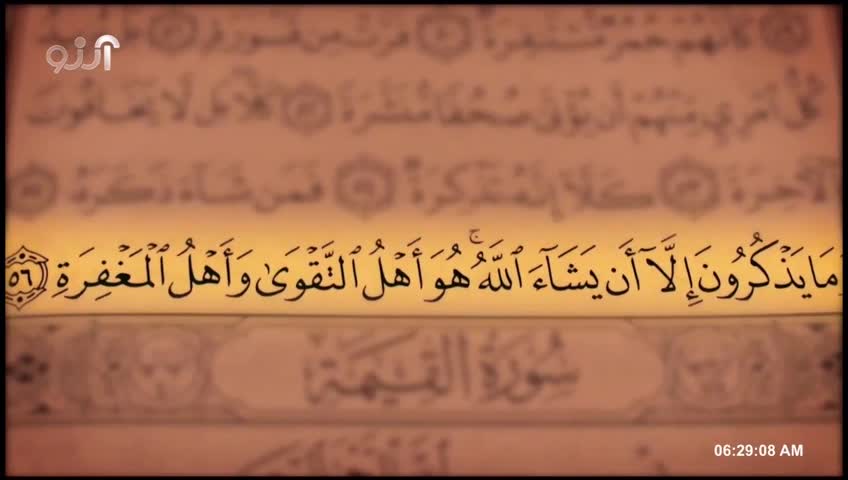 آرزو
كَأَنَّهُمْ حُمُرٌ مُّسْتَنفِرَةٌ ٥٠ فَرَّتْ مِن قَسْوَرَةٍ
كُلُّ ٱمْرِئٍ مِّنْهُمْ أَن يُؤْتَىٰ صُحُفًا مُّنَشَّرَةً ٥٢ كَلَّا بَل لَّا يَخَافُونَ
ٱلْأَخِرَةَ ٥٣ كَلَّآ إِنَّهُۥ تَذْكِرَةٌ ٥٤ فَمَن شَآءَ ذَكَرَهُۥ ٥٥
وَمَا يَذْكُرُونَ إِلَّآ أَن يَشَآءَ ٱللَّهُ ۚ هُوَ أَهْلُ ٱلتَّقْوَىٰ وَأَهْلُ ٱلْمَغْفِرَةِ ٥٦
سُورَةُ القِيَامَةِ
06:29:08 AM